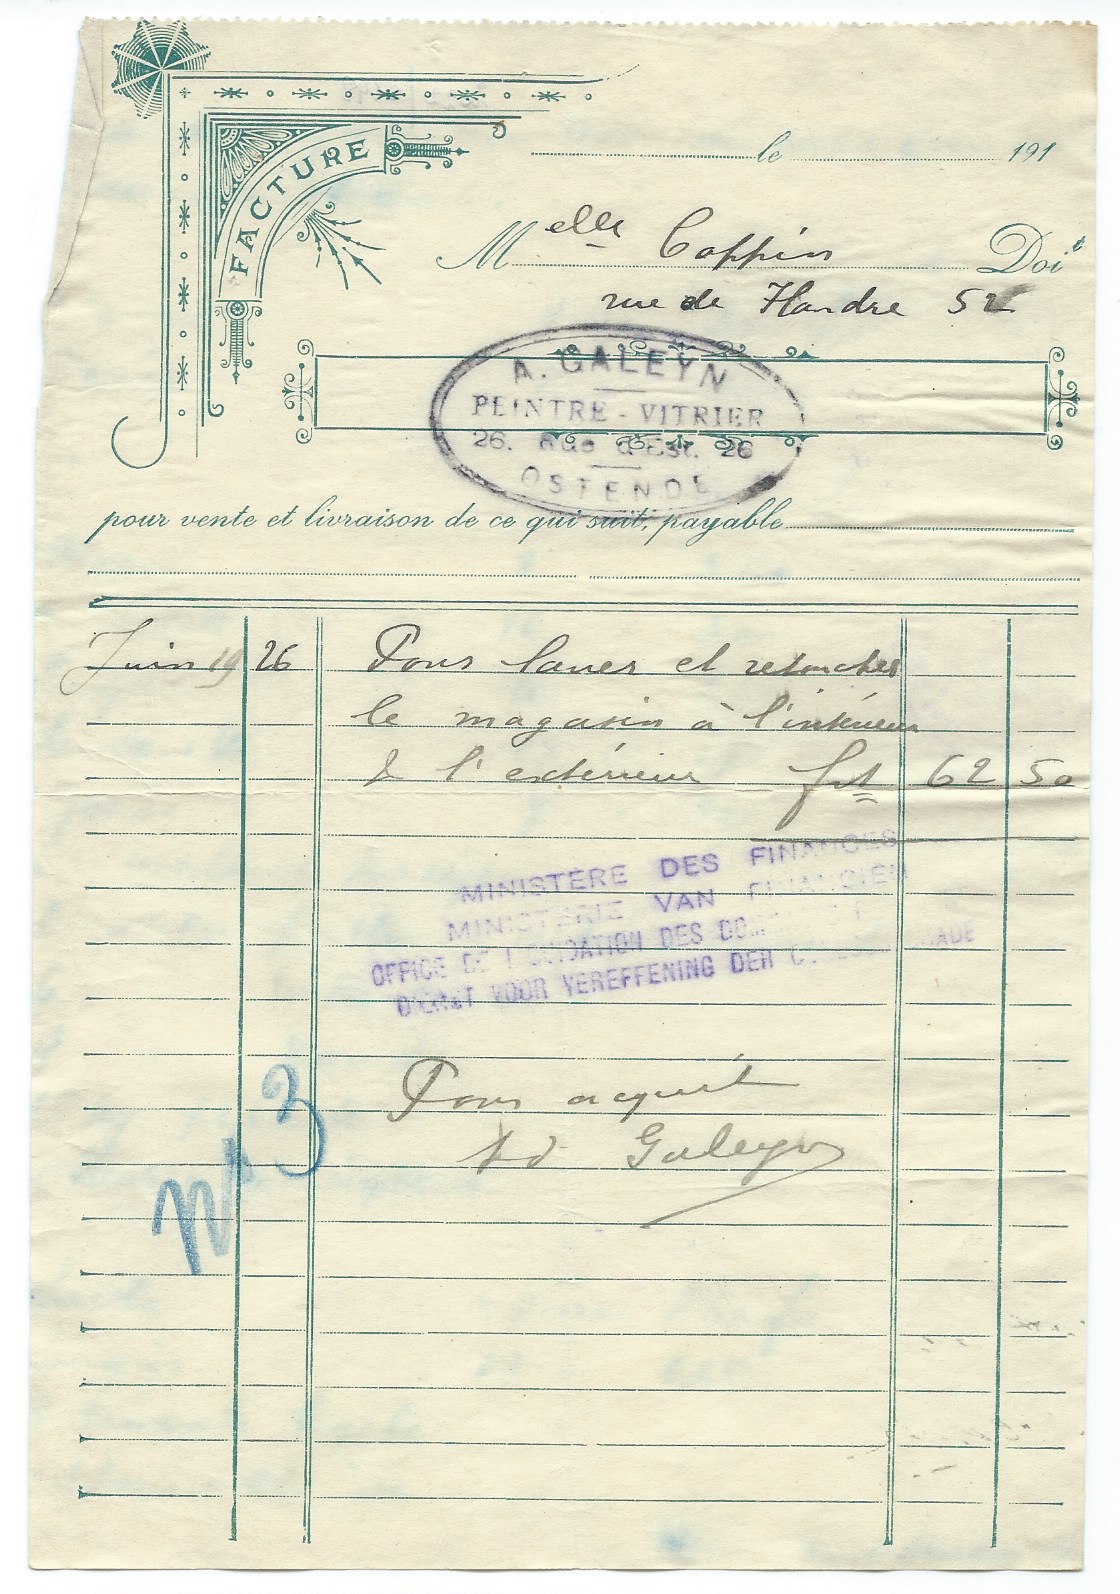 FACTURE
le 191
Melle Coppin Doit
rue de Flandre 52
A. GALEYN
PEINTRE - VITRIER
26. Rue d'Est. 26
OSTENDE
pour vente et livraison de ce qui suit, payable
Juin 19 26 Pour laver et retoucher
le magasin à l'intérieur
& l'extérieur 62 50
MINISTÈRE DES FINANCES
MINISTERIE VAN FINANCIEN
OFFICE DE LIQUIDATION DES
DIENST VOOR VEREFFENING DER
Pour acquit
Ad Galeyn
No 3